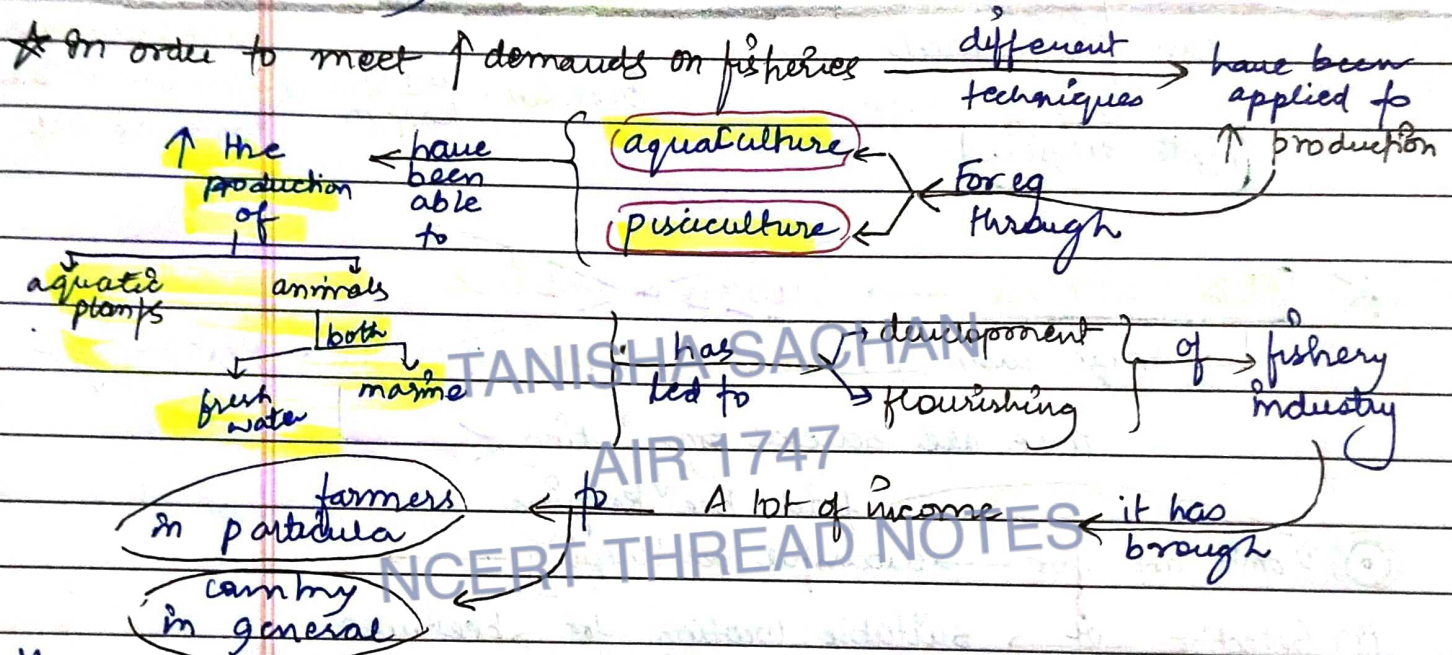 ☆ In order to meet ↑ demands on fisheries → different techniques → have been applied to ↑ production
For eg through
aquaculture
pisciculture
have been able to
↑ the production of
aquatic plants
animals
both
fresh water
marine
has led to
development
flourishing
of
fishery industry
it has brough
A lot of income
to
farmers in particula
country in general
TANISHA SACHAN
AIR 1747
NCERT THREAD NOTES